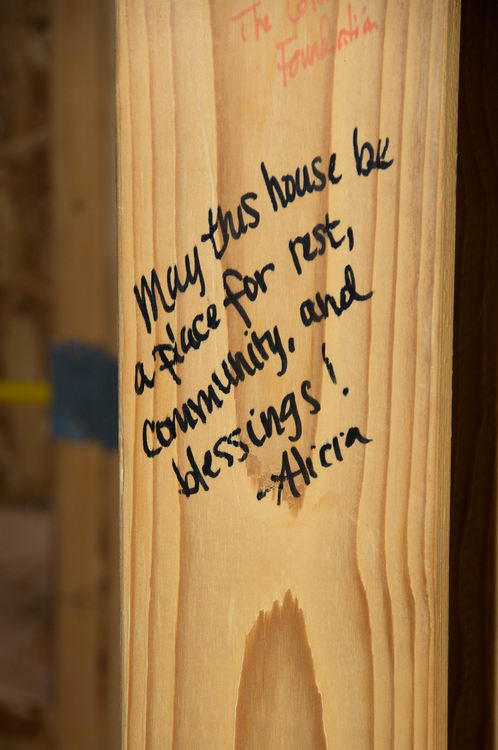 The
Foundation
May this house be
a place for rest,
community, and
blessings!
-Alicia